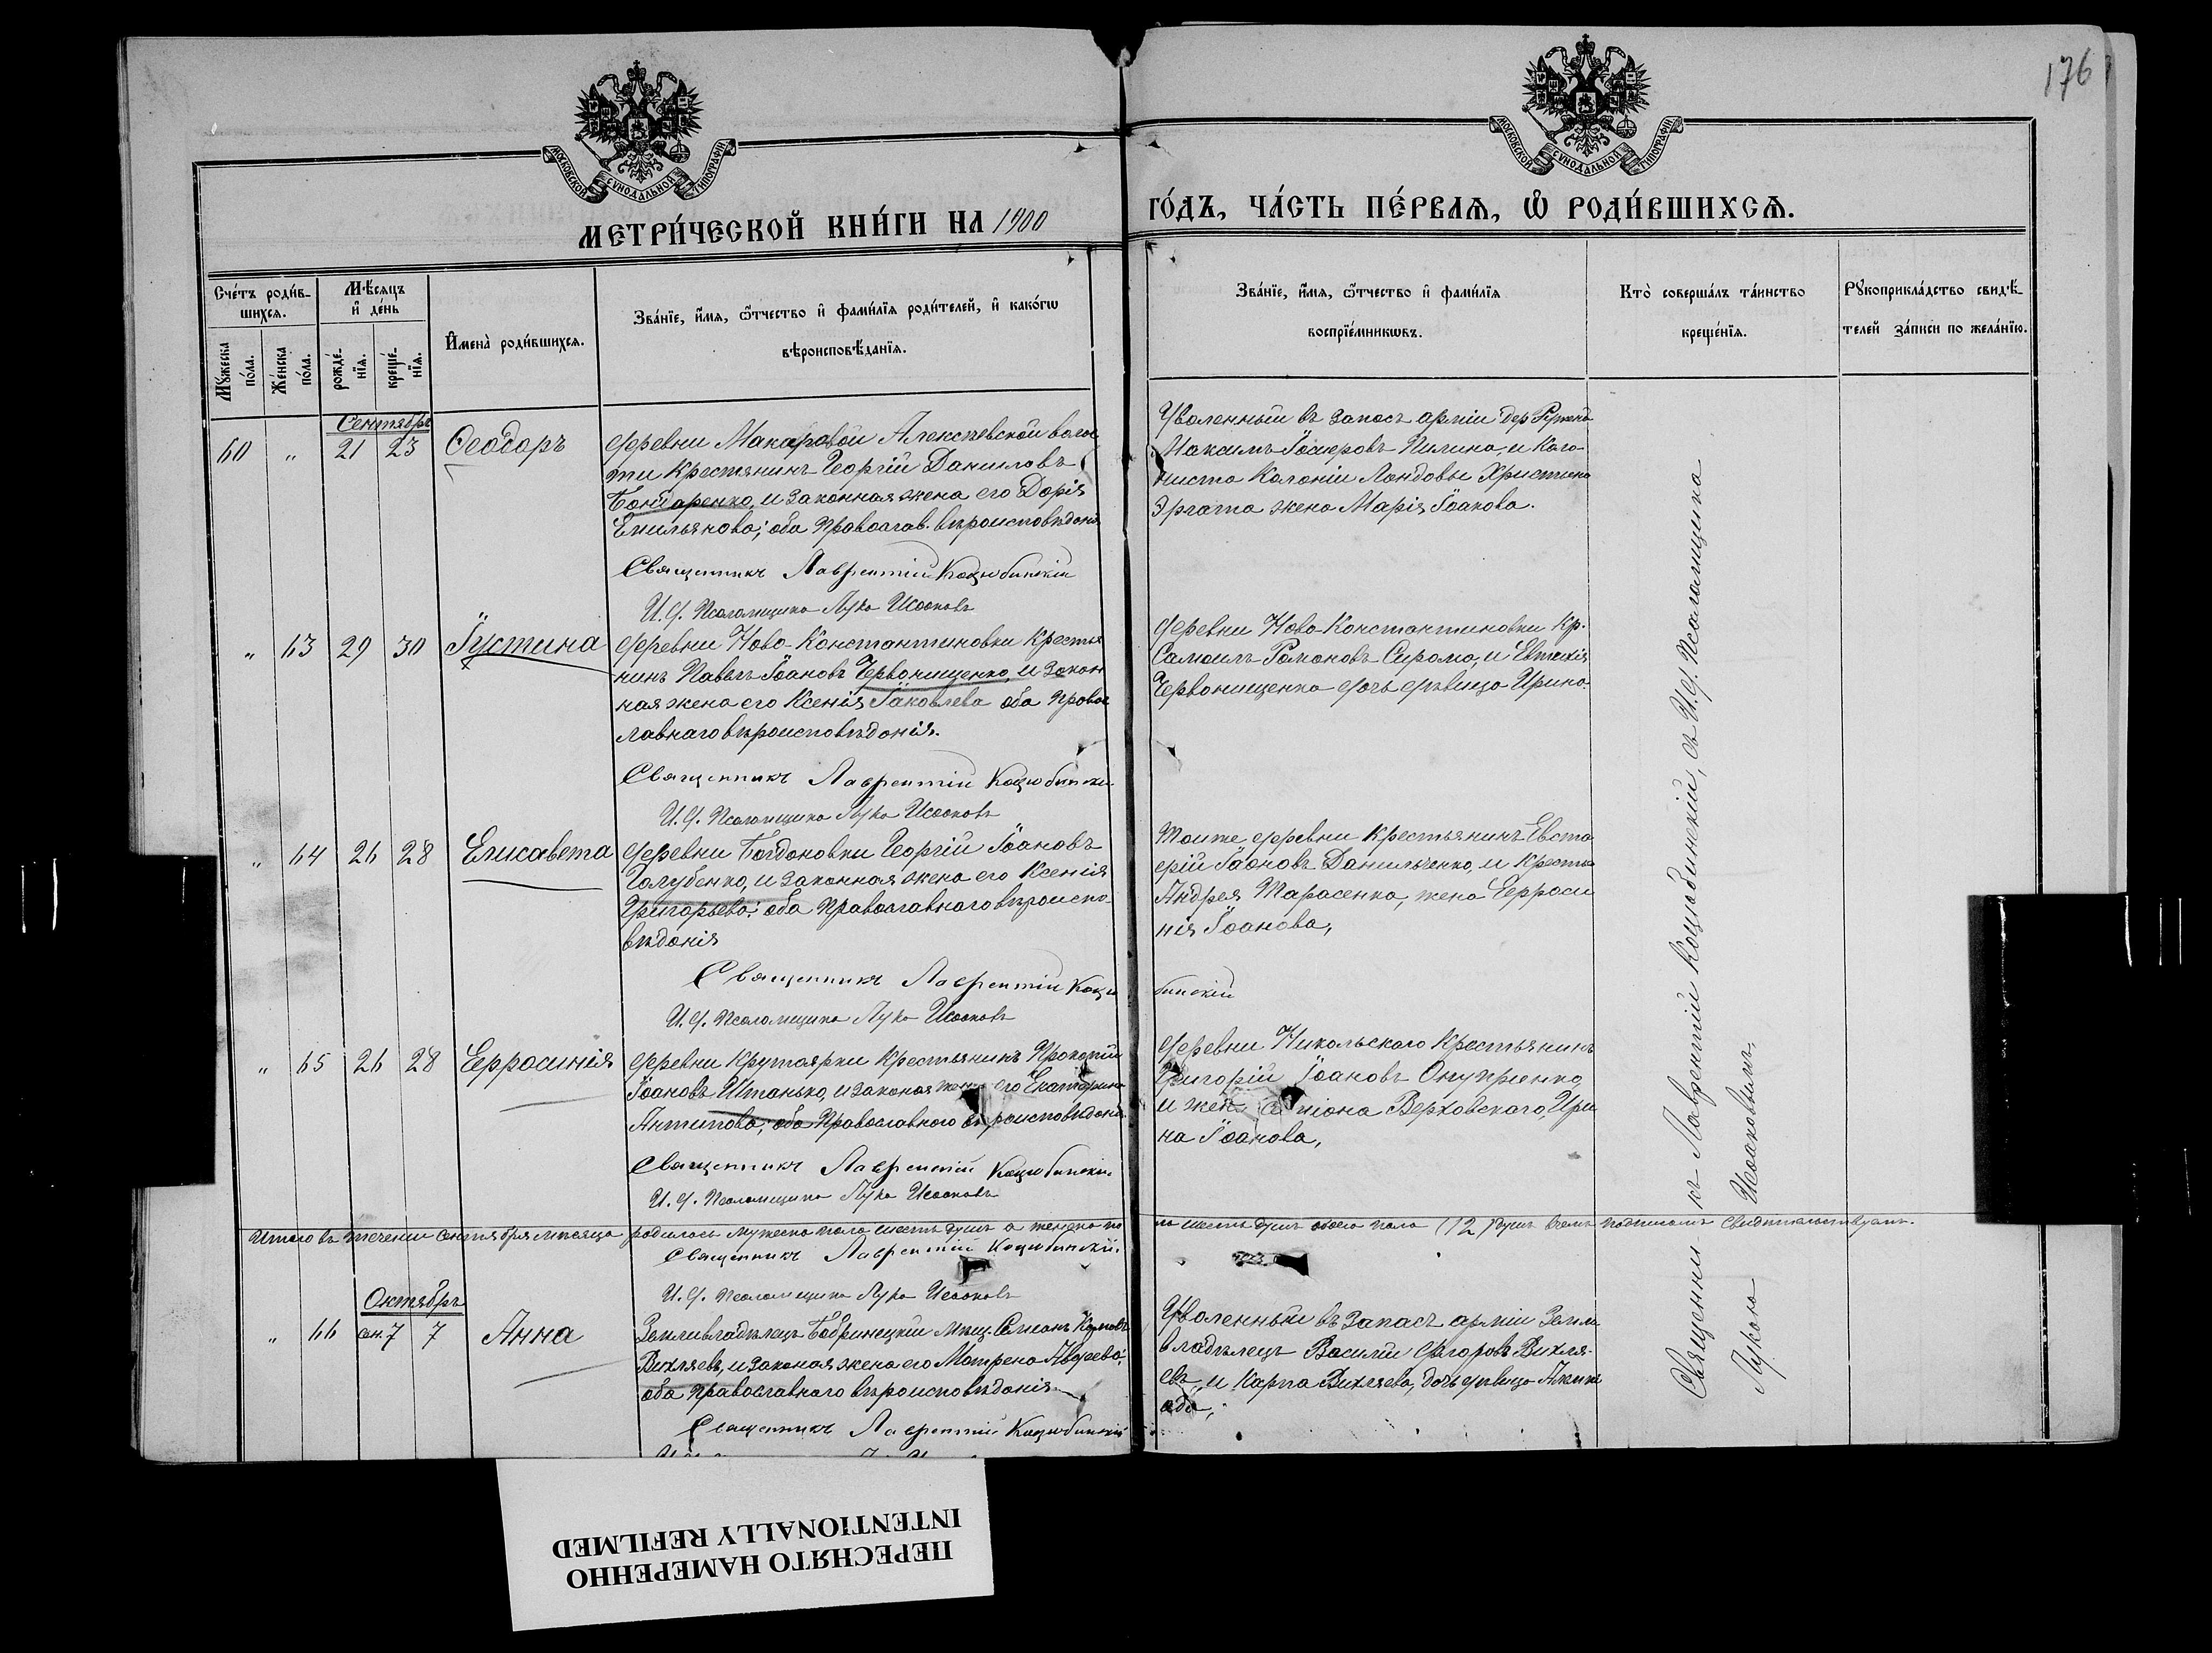 176
МОСКОВСКОЙ СУНОДАЛЬНОЙ ТИПОГРАФІИ
МОСКОВСКОЙ СУНОДАЛЬНОЙ ТИПОГРАФІИ
МЕТРИ́ЧЕСКОЙ КНИ́ГИ НА 1900
ГО́ДЪ, ЧА́СТЬ ПЕ́РВАЯ, Ѡ РОДИ́ВШИХСЯ.
Сче́тъ роди́в-
шихся.
Мꙋжеска по́ла.
Же́нска по́ла.
Мѣ́сяцъ и де́нь
рожде́-нїя.
креще́-нїя.
Имена̀ роди́вшихся.
Зва́нїе, и́мя, ѻ́тчество и фами́лїя роди́телей, и како́гѡ
вѣроисповѣ́данїя.
Зва́нїе, и́мя, ѻ́тчество и фами́лїя
воспрїе́мникѡвъ.
Кто̀ соверша́лъ та́инство
креще́нїя.
Рꙋкоприкла́дство свидѣ́-
телей за́писи по жела́нїю.
Сентябрь
60 " 21 23 Ѳеодоръ
деревни Макаровой Алексѣевской волос
ти крестянинъ Георгій Даниловъ
Бондаренко, и законная жена его Дарія
Емильянова; оба православ. вѣроисповѣданія
Священникъ Лаврентій Коцюбинскій
И. д. Псаломщика Лука Исааковъ
Уволенный въ запасъ арміи дер.
Максимъ Пилипа, и коло-
ниста Колоніи Ландовы Христьяна
жена Марія Іоанова.
" 63 29 30 Іустина
деревни Ново-Константиновки Крестья
нинъ Павелъ Іоановъ Червонищенко, и закон
ная жена его Ксенія Іаковлева оба правос
лавнаго вѣроисповѣданія.
Священникъ Лаврентій Коцюбински
И. д. Псаломщика Лука Исааковъ
деревни Ново-Константиновки Кр.
Самоилъ Романовъ Сирома, и Евтихія
Червонищенка дочь дѣвица Ирина.
" 64 26 28 Елисавета
деревни Богдановки Георгій Іоановъ
Голубенко, и законная жена его Ксенія
Григорьева; оба православнаго вѣроиспо
вѣданія
Священникъ Лаврентій Коцю
бинскій
И. д. Псаломщика Лука Исааковъ
Тойже деревни крестьянинъ Евста
фій Іоановъ Данильченко, и крестья
Андрея Тарасенка, жена Ефроси
нія Іоанова,
" 65 26 28 Ефросинія
деревни Крутоярки крестьянинъ Прокопій
Іоановъ Штанько, и законая жена его Екатерина
Антипова; оба православнаго вѣроисповѣдані
Священникъ Лаврентій Коцюбински
И. д. Псаломщика Лука Исааковъ
деревни Никольскаго Крестьянинъ
Григорій Іоановъ Онупріенко,
и жен Верховскаго, Ири
на Іоанова,
Итого въ теченіи Сентября мѣсяца родилось мужеска пола шесть душъ а женска по
ла шесть душъ обоего пола (12) душъ въ чемъ подписомъ свидѣтельствуемъ.
Священникъ Лаврентій Коцюбинскій.
И. д. Псаломщика Лука Исааковъ
Октябрь
" 66 сен. 7 7 Анна
Землевладѣлецъ Бобринецкій мѣщ. Симеонъ Карповъ
Вихляевъ, и законая жена его Матрена Авдеева;
оба православнаго вѣроисповѣданія.
Священникъ Лаврентій Коцюбинскій
Уволенный въ запасъ арміи земле
владѣлецъ Василій Федоровъ Вихля-
евъ, и Карпа Вихляева, дочь дѣвица

Священникъ Лаврентій Коцюбинскій, съ И. д. Псаломщика
Лукою Исааковымъ.
ПЕРЕСНЯТО НАМЕРЕННО
INTENTIONALLY REFILMED